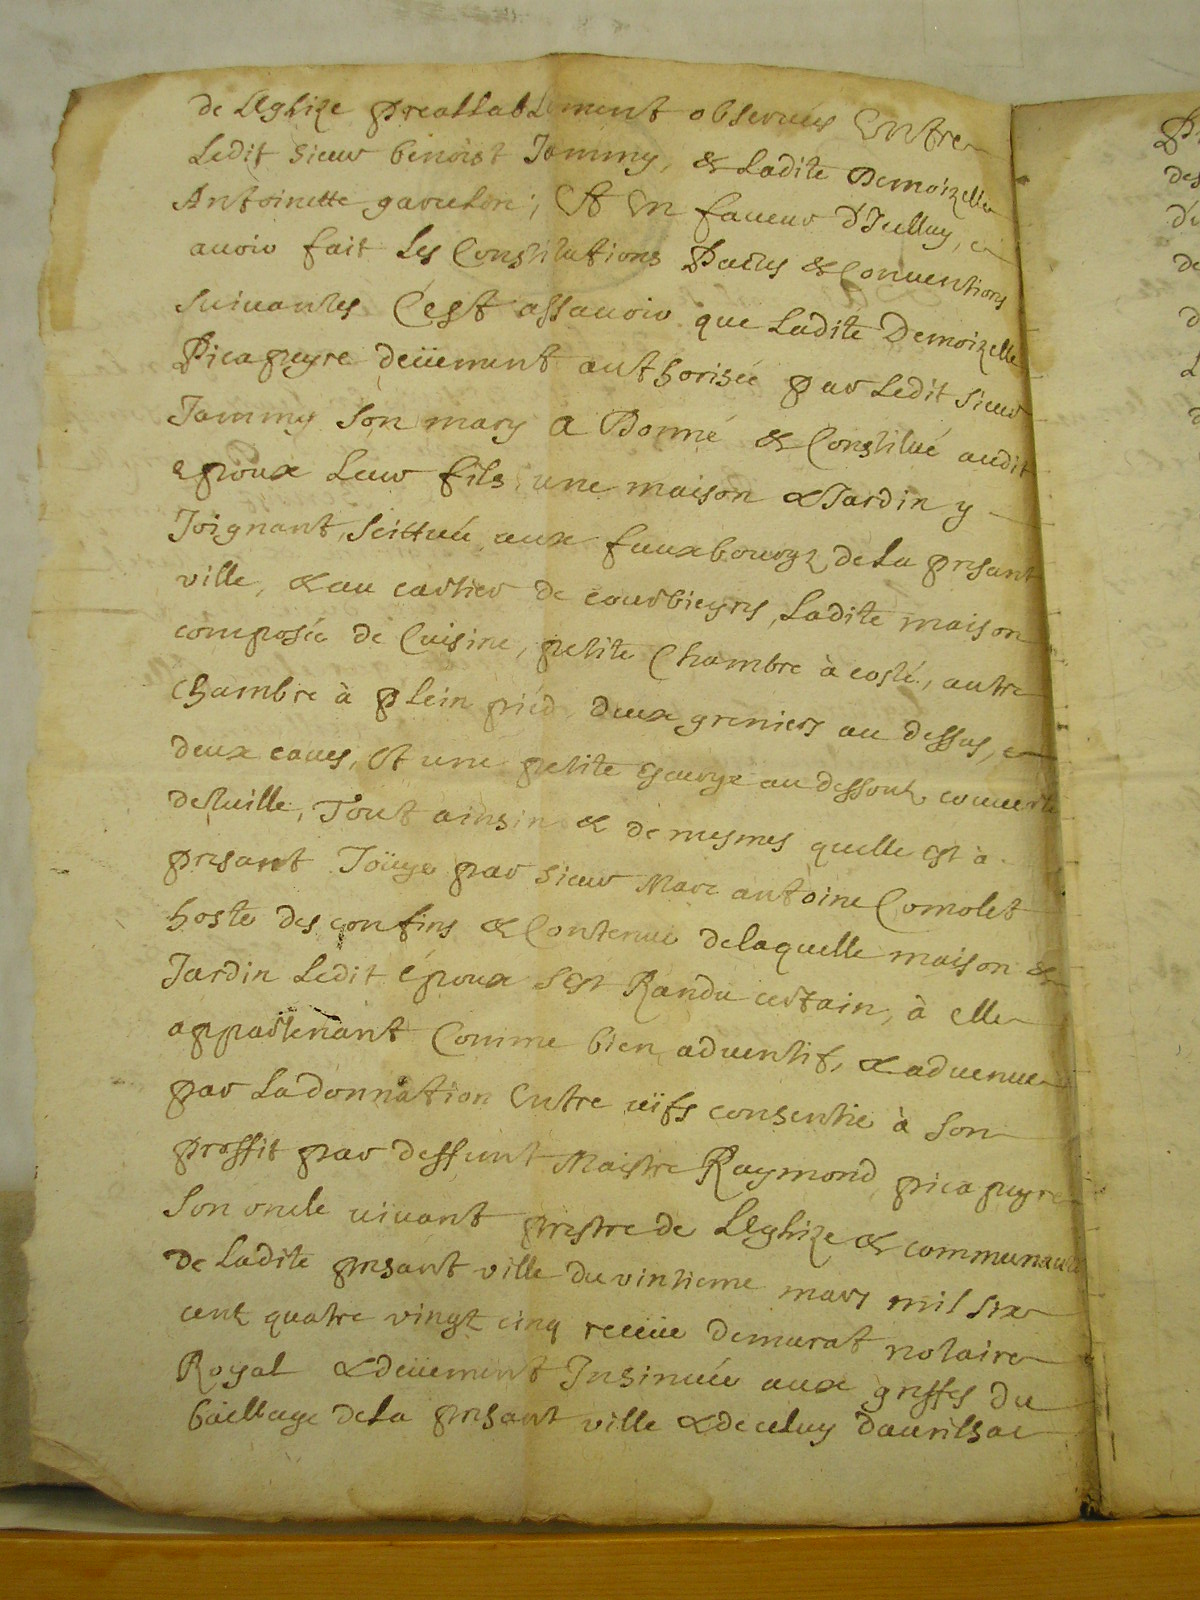 de LEglize preallablement observées Entre
Ledit sieur benoist Jammy, & Ladite Demoizelle
Antoinette gavulon; Et En faveur d'Iculluy,
avoir fait Les Constitutions Pactes & Conventions
suivantes C'est assavoir que Ladite Demoizelle
Picapeyre deüement authorisée par Ledit sieur
Jammy son mary a Donné & Constitué audit
epoux Leur fils une maison & Jardin y
Joignant, scittué aux fauxbourgz de La presant
ville, & au cartier de courbieyres, Ladite maison
composée de Cuisine, petite Chambre à costé, autre
chambre à plein pied, deux greniers au dessus,
deux caves, Et une petite au dessoubz couverte
de tuille, Tout ainsin & de mesmes quelle est à
presant Joüye par sieur Marc antoine Comolet
hoste des confins & Contenue delaquelle maison &
Jardin Ledit époux s'est Randu certain, à elle
appartenant Comme bien adventif, & advenue
par La donnation Entre vifs consentie à son
proffit par deffunt Maistre Raymond picapeyre
son oncle vivant prestre de LEglize & communauté
de Ladite presant ville du vintieme mars mil six
cent quatre vingt cinq receüe demurat notaire
Royal & deüement Insinuée aux greffes du
bailliage de La presant ville & de celuy daurilhac